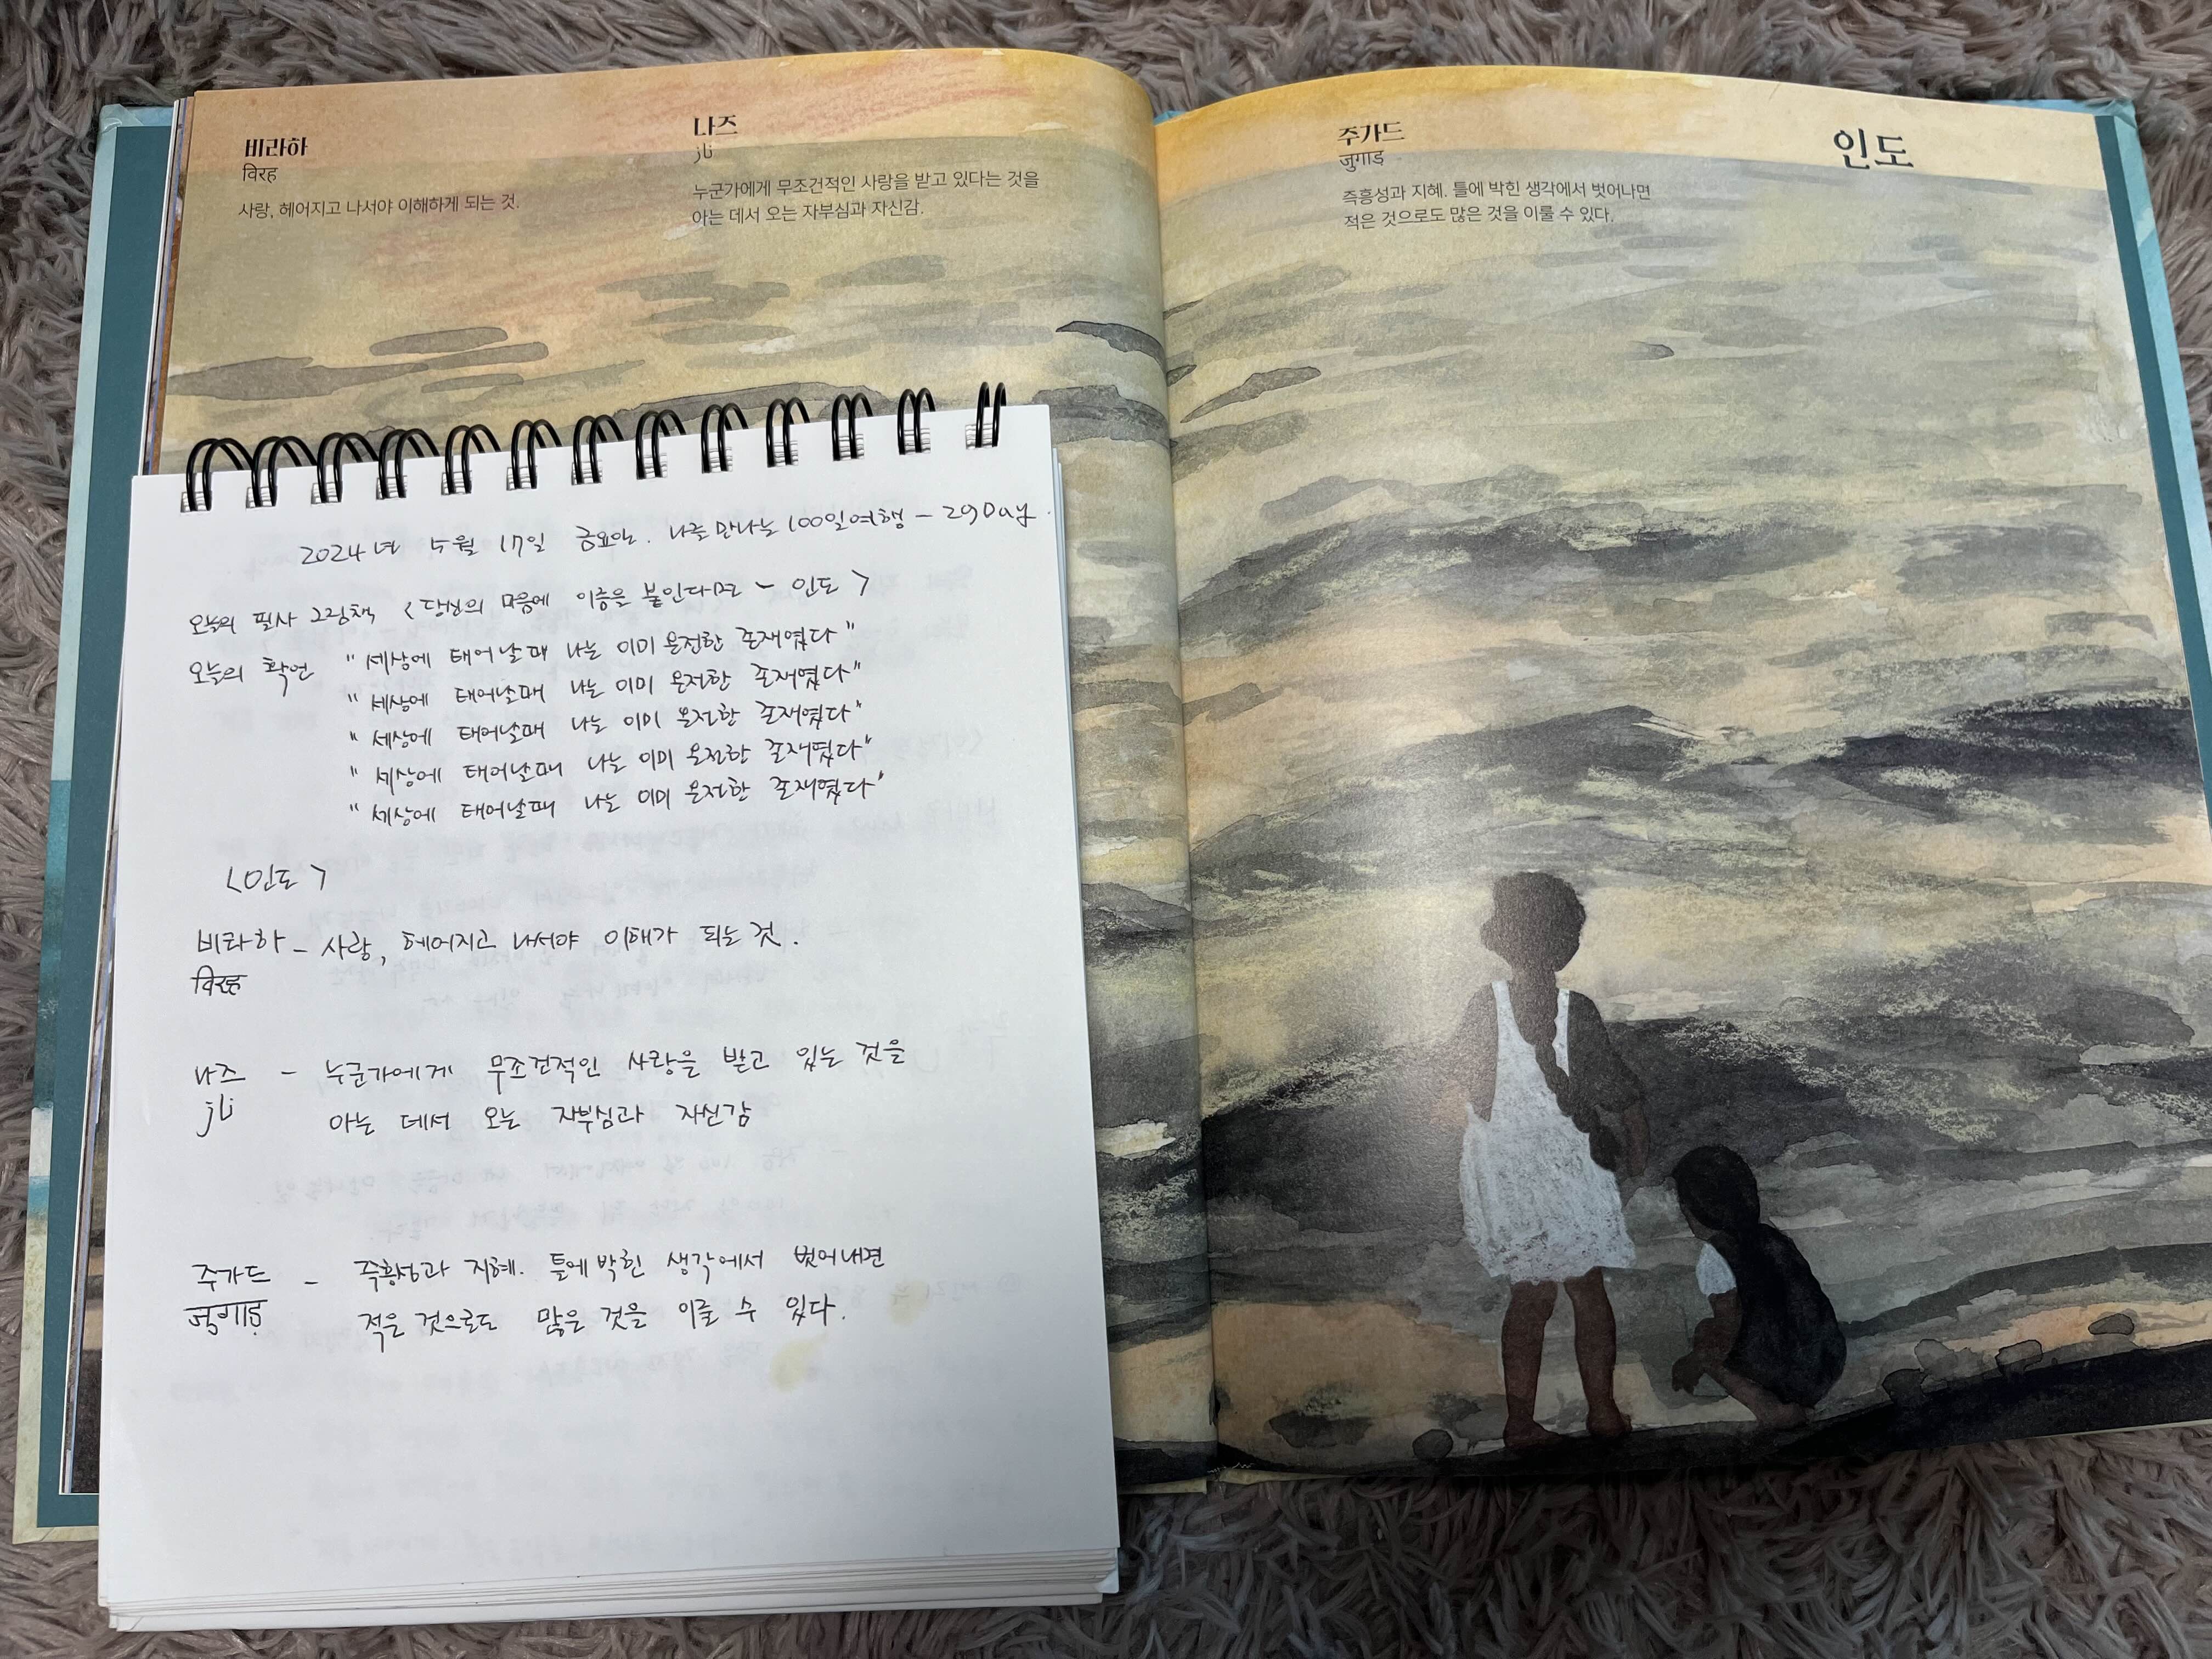 비라하
विरह
사랑, 헤어지고 나서야 이해하게 되는 것.
나즈
ناز
누군가에게 무조건적인 사랑을 받고 있다는 것을
아는 데서 오는 자부심과 자신감.
주가드
जुगाड़
즉흥성과 지혜. 틀에 박힌 생각에서 벗어나면
적은 것으로도 많은 것을 이룰 수 있다.
인도
2024년 5월 17일 금요일. 나를 만나는 100일여행 - 29Day.
오늘의 필사 그림책 <당신의 마음에 이름을 붙인다면 - 인도>
오늘의 확언 "세상에 태어날때 나는 이미 온전한 존재였다"
"세상에 태어날때 나는 이미 온전한 존재였다"
"세상에 태어날때 나는 이미 온전한 존재였다"
"세상에 태어날때 나는 이미 온전한 존재였다"
"세상에 태어날때 나는 이미 온전한 존재였다"
<인도>
비라하 - 사랑, 헤어지고 나서야 이해가 되는 것.
विरह
나즈 - 누군가에게 무조건적인 사랑을 받고 있는 것을
ناز
아는 데서 오는 자부심과 자신감
주가드 - 즉흥성과 지혜. 틀에 박힌 생각에서 벗어나면
जुगाड़
적은 것으로도 많은 것을 이룰 수 있다.